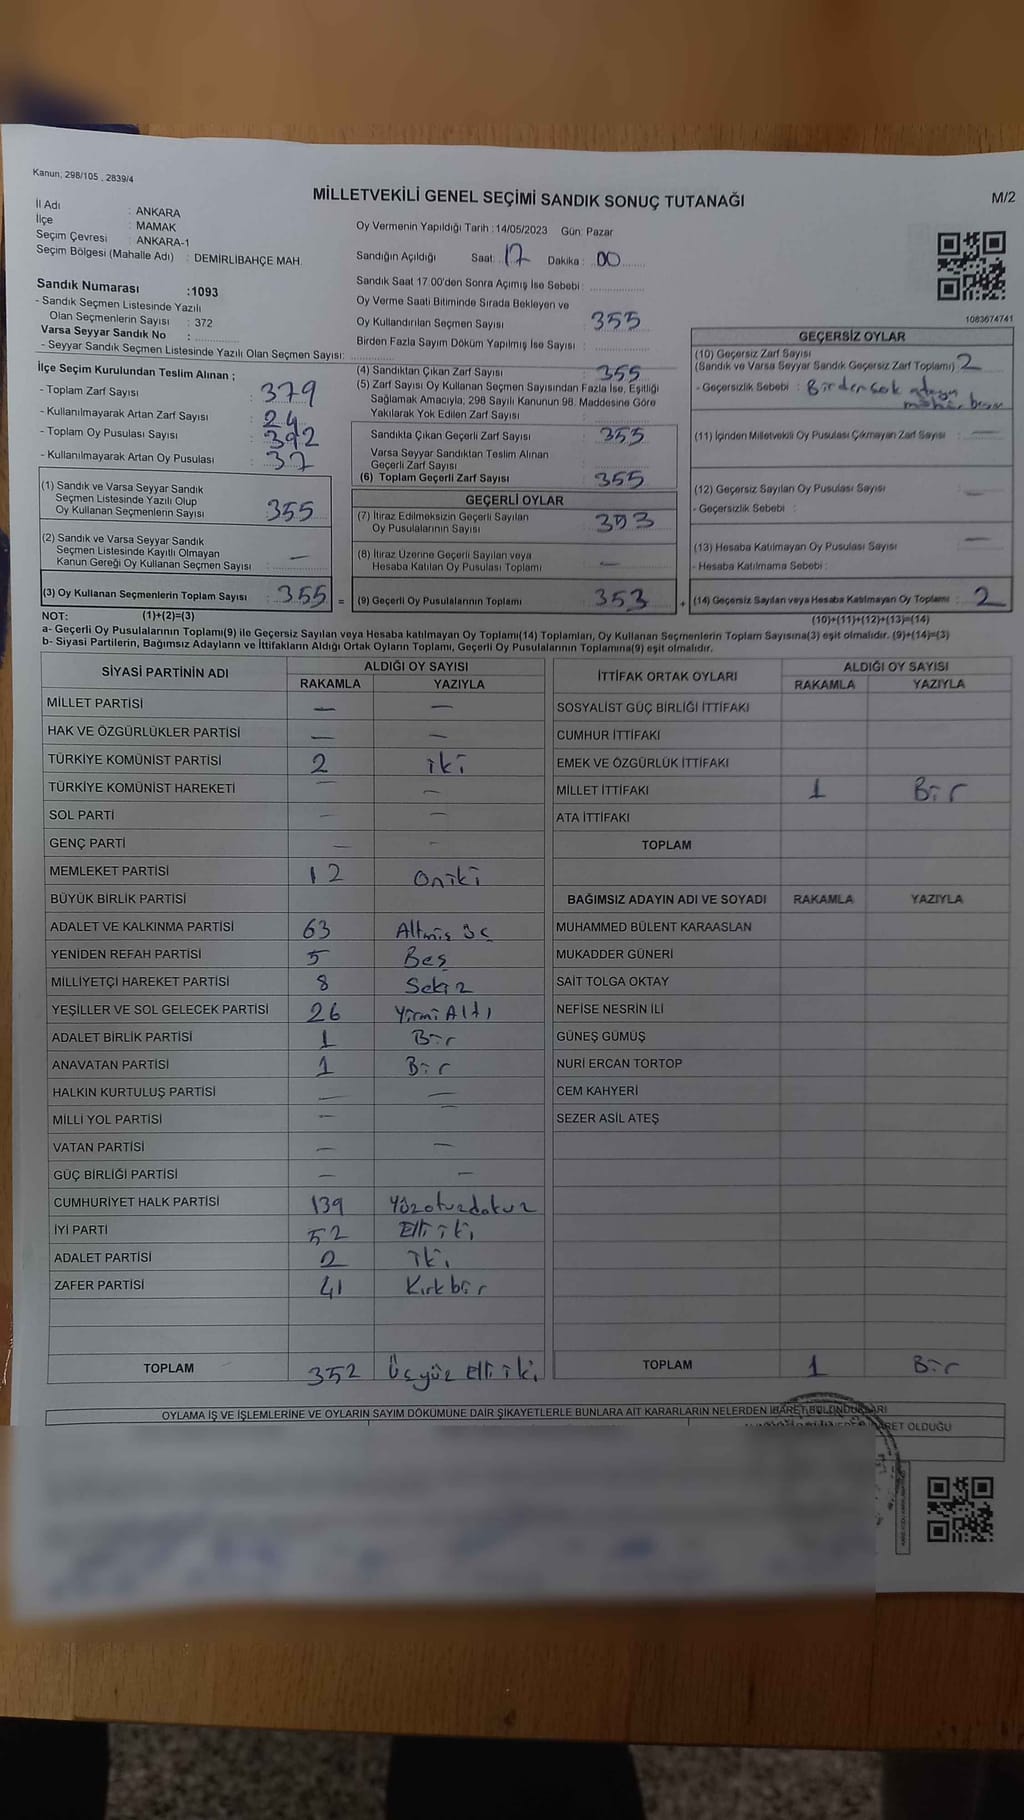 Kanun; 298/105 , 2839/4
MİLLETVEKİLİ GENEL SEÇİMİ SANDIK SONUÇ TUTANAĞI
M/2
İl Adı : ANKARA
İlçe : MAMAK
Seçim Çevresi : ANKARA-1
Seçim Bölgesi (Mahalle Adı) : DEMİRLİBAHÇE MAH.
Sandık Numarası :1093
- Sandık Seçmen Listesinde Yazılı
Olan Seçmenlerin Sayısı : 372
Varsa Seyyar Sandık No :
- Seyyar Sandık Seçmen Listesinde Yazılı Olan Seçmen Sayısı:
Oy Vermenin Yapıldığı Tarih : 14/05/2023 Gün: Pazar
Sandığın Açıldığı Saat: 17 Dakika : 00
Sandık Saat 17.00'den Sonra Açımış İse Sebebi :
Oy Verme Saati Bitiminde Sırada Bekleyen ve
Oy Kullandırılan Seçmen Sayısı : 355
Birden Fazla Sayım Döküm Yapılmış İse Sayısı :
1083674741
İlçe Seçim Kurulundan Teslim Alınan ;
- Toplam Zarf Sayısı : 379
- Kullanılmayarak Artan Zarf Sayısı : 24
- Toplam Oy Pusulası Sayısı : 392
- Kullanılmayarak Artan Oy Pusulası : 37
(1) Sandık ve Varsa Seyyar Sandık
Seçmen Listesinde Yazılı Olup
Oy Kullanan Seçmenlerin Sayısı : 355
(2) Sandık ve Varsa Seyyar Sandık
Seçmen Listesinde Kayıtlı Olmayan
Kanun Gereği Oy Kullanan Seçmen Sayısı : —
(3) Oy Kullanan Seçmenlerin Toplam Sayısı : 355 =
(4) Sandıktan Çıkan Zarf Sayısı : 355
(5) Zarf Sayısı Oy Kullanan Seçmen Sayısından Fazla İse, Eşitliği
Sağlamak Amacıyla; 298 Sayılı Kanunun 98. Maddesine Göre
Yakılarak Yok Edilen Zarf Sayısı :
Sandıkta Çıkan Geçerli Zarf Sayısı : 355
Varsa Seyyar Sandıktan Teslim Alınan
Geçerli Zarf Sayısı
(6) Toplam Geçerli Zarf Sayısı : 355
GEÇERLİ OYLAR
(7) İtiraz Edilmeksizin Geçerli Sayılan
Oy Pusulalarının Sayısı : 353
(8) İtiraz Üzerine Geçerli Sayılan veya
Hesaba Katılan Oy Pusulası Toplamı : —
(9) Geçerli Oy Pusulalarının Toplamı : 353 +
GEÇERSİZ OYLAR
(10) Geçersiz Zarf Sayısı
(Sandık ve Varsa Seyyar Sandık Geçersiz Zarf Toplamı) : 2
- Geçersizlik Sebebi : Birden
(11) İçinden Milletvekili Oy Pusulası Çıkmayan Zarf Sayısı : —
(12) Geçersiz Sayılan Oy Pusulası Sayısı : —
- Geçersizlik Sebebi :
(13) Hesaba Katılmayan Oy Pusulası Sayısı : —
- Hesaba Katılmama Sebebi :
(14) Geçersiz Sayılan veya Hesaba Katılmayan Oy Toplamı : 2
NOT: (1)+(2)=(3)
(10)+(11)+(12)+(13)=(14)
a- Geçerli Oy Pusulalarının Toplamı(9) ile Geçersiz Sayılan veya Hesaba katılmayan Oy Toplamı(14) Toplamları, Oy Kullanan Seçmenlerin Toplam Sayısına(3) eşit olmalıdır. (9)+(14)=(3)
b- Siyasi Partilerin, Bağımsız Adayların ve İttifakların Aldığı Ortak Oyların Toplamı, Geçerli Oy Pusulalarının Toplamına(9) eşit olmalıdır.
SİYASİ PARTİNİN ADI ALDIĞI OY SAYISI
RAKAMLA YAZIYLA
MİLLET PARTİSİ — —
HAK VE ÖZGÜRLÜKLER PARTİSİ — —
TÜRKİYE KOMÜNİST PARTİSİ 2 iki
TÜRKİYE KOMÜNİST HAREKETİ — —
SOL PARTİ — —
GENÇ PARTİ — —
MEMLEKET PARTİSİ 12 Oniki
BÜYÜK BİRLİK PARTİSİ
ADALET VE KALKINMA PARTİSİ 63 Altmış üç
YENİDEN REFAH PARTİSİ 5 Beş
MİLLİYETÇİ HAREKET PARTİSİ 8 Sekiz
YEŞİLLER VE SOL GELECEK PARTİSİ 26 Yirmi Altı
ADALET BİRLİK PARTİSİ 1 Bir
ANAVATAN PARTİSİ 1 Bir
HALKIN KURTULUŞ PARTİSİ — —
MİLLİ YOL PARTİSİ — —
VATAN PARTİSİ — —
GÜÇ BİRLİĞİ PARTİSİ — —
CUMHURİYET HALK PARTİSİ 139 Yüzotuzdokuz
İYİ PARTİ 52 Elli iki
ADALET PARTİSİ 2 iki
ZAFER PARTİSİ 41 Kırk bir
TOPLAM 352 Üçyüz elli iki
İTTİFAK ORTAK OYLARI ALDIĞI OY SAYISI
RAKAMLA YAZIYLA
SOSYALİST GÜÇ BİRLİĞİ İTTİFAKI
CUMHUR İTTİFAKI
EMEK VE ÖZGÜRLÜK İTTİFAKI
MİLLET İTTİFAKI 1 Bir
ATA İTTİFAKI
TOPLAM
BAĞIMSIZ ADAYIN ADI VE SOYADI RAKAMLA YAZIYLA
MUHAMMED BÜLENT KARAASLAN
MUKADDER GÜNERİ
SAİT TOLGA OKTAY
NEFİSE NESRİN İLİ
GÜNEŞ GÜMÜŞ
NURİ ERCAN TORTOP
CEM KAHYERİ
SEZER ASİL ATEŞ
TOPLAM 1 Bir
OYLAMA İŞ VE İŞLEMLERİNE VE OYLARIN SAYIM DÖKÜMÜNE DAİR ŞİKAYETLERLE BUNLARA AİT KARARLARIN NELERDEN İBARET BULUNDUKLARI
OLDUĞU